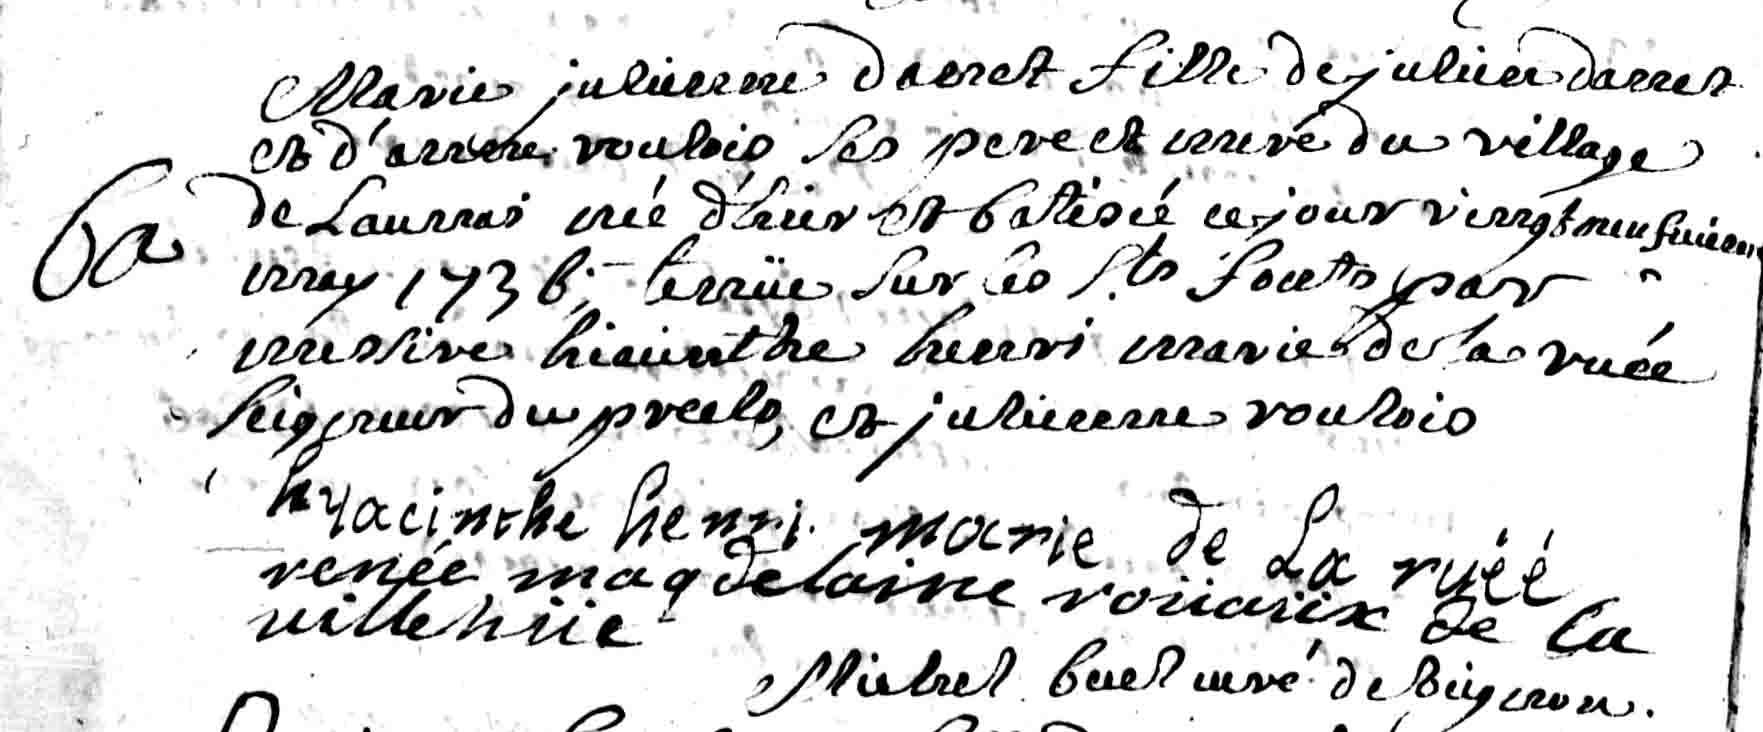 Marie julienne danet fille de julien danet
et d'anne roulois ses pere et mere du village
de Launnai née d'hier et batisée ce jour vingt neufuieme
ba
may 1736; tenüe sur les Sts fonts par
messire hiacinthe henri marie de la ruée
seigneur du preclo, et julienne roulois
hyacinthe henri marie de La ruéé
renée magdelaine roüaüx de la
villehüe
Michel buel curé de Bignon.